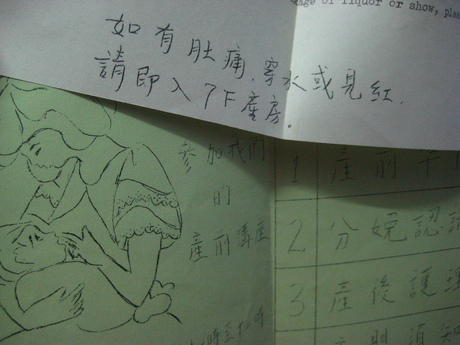 of liquor or show, plea
如有肚痛,穿水或見紅,
請即入7F產房。
參加我們
的
產前講座
1 產前
2 分娩認
3 產後護理